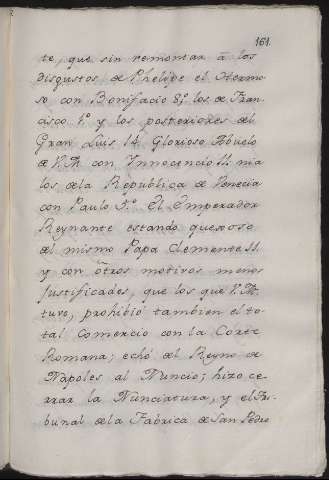 161.
te, que sin remontar â los
disgustos de Phelipe el Hermo
so con Bonifacio 8.º los de Fran
cisco 1.º y los posteriores del
Gran Luis 14. Glorioso Abuelo
de V.M. con Innocencio 11. ni a
los de la Republica de Venecia
con Paulo 5.º El Emperador
Reynante estando quexoso
del mismo Papa Clemente 11.
y con òtros motivos menos
justificados, que los que V.M.
tuvo, prohibió tambien el to
tal Comercio con la Corte
Romana; echó del Reyno de
Napoles al Nuncio; hizo ce
rrar la Nunciatura, y el Tri
bunal de la Fabrica de San Pedro